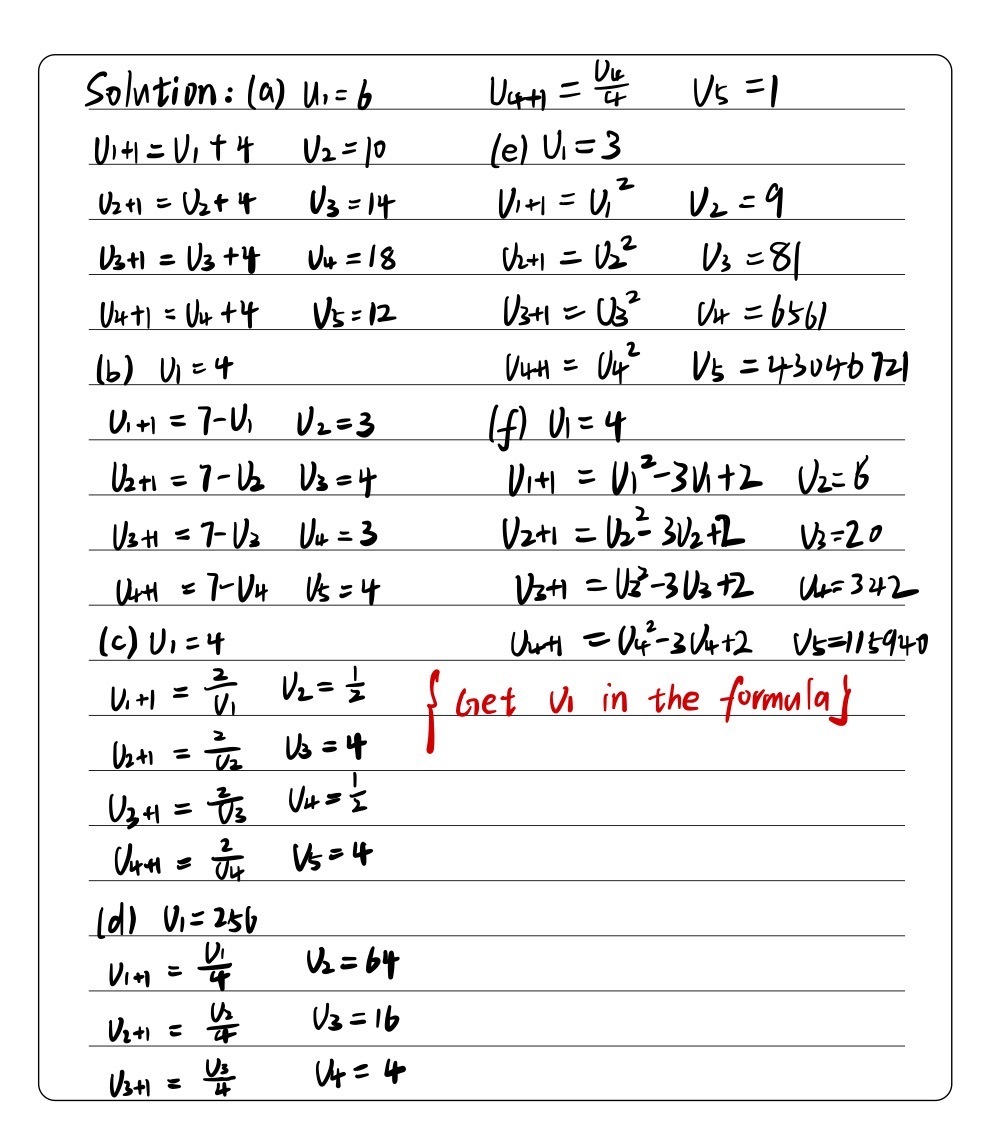 Solution: (a) U₁ = 6
U₁₊₁ = U₁ + 4 U₂ = 10
U₂₊₁ = U₂ + 4 U₃ = 14
U₃₊₁ = U₃ + 4 U₄ = 18
U₄₊₁ = U₄ + 4 U₅ = 12
(b) U₁ = 4
U₁₊₁ = 7 - U₁ U₂ = 3
U₂₊₁ = 7 - U₂ U₃ = 4
U₃₊₁ = 7 - U₃ U₄ = 3
U₄₊₁ = 7 - U₄ U₅ = 4
(c) U₁ = 4
U₁₊₁ = 2/U₁ U₂ = 1/2
U₂₊₁ = 2/U₂ U₃ = 4
U₃₊₁ = 2/U₃ U₄ = 1/2
U₄₊₁ = 2/U₄ U₅ = 4
(d) U₁ = 256
U₁₊₁ = U₁/4 U₂ = 64
U₂₊₁ = U₂/4 U₃ = 16
U₃₊₁ = U₃/4 U₄ = 4
U₄₊₁ = U₄/4 U₅ = 1
(e) U₁ = 3
U₁₊₁ = U₁² U₂ = 9
U₂₊₁ = U₂² U₃ = 81
U₃₊₁ = U₃² U₄ = 6561
U₄₊₁ = U₄² U₅ = 43046721
(f) U₁ = 4
U₁₊₁ = U₁² - 3U₁ + 2 U₂ = 6
U₂₊₁ = U₂² - 3U₂ + 2 U₃ = 20
U₃₊₁ = U₃² - 3U₃ + 2 U₄ = 342
U₄₊₁ = U₄² - 3U₄ + 2 U₅ = 115940
{Get U₁ in the formula}